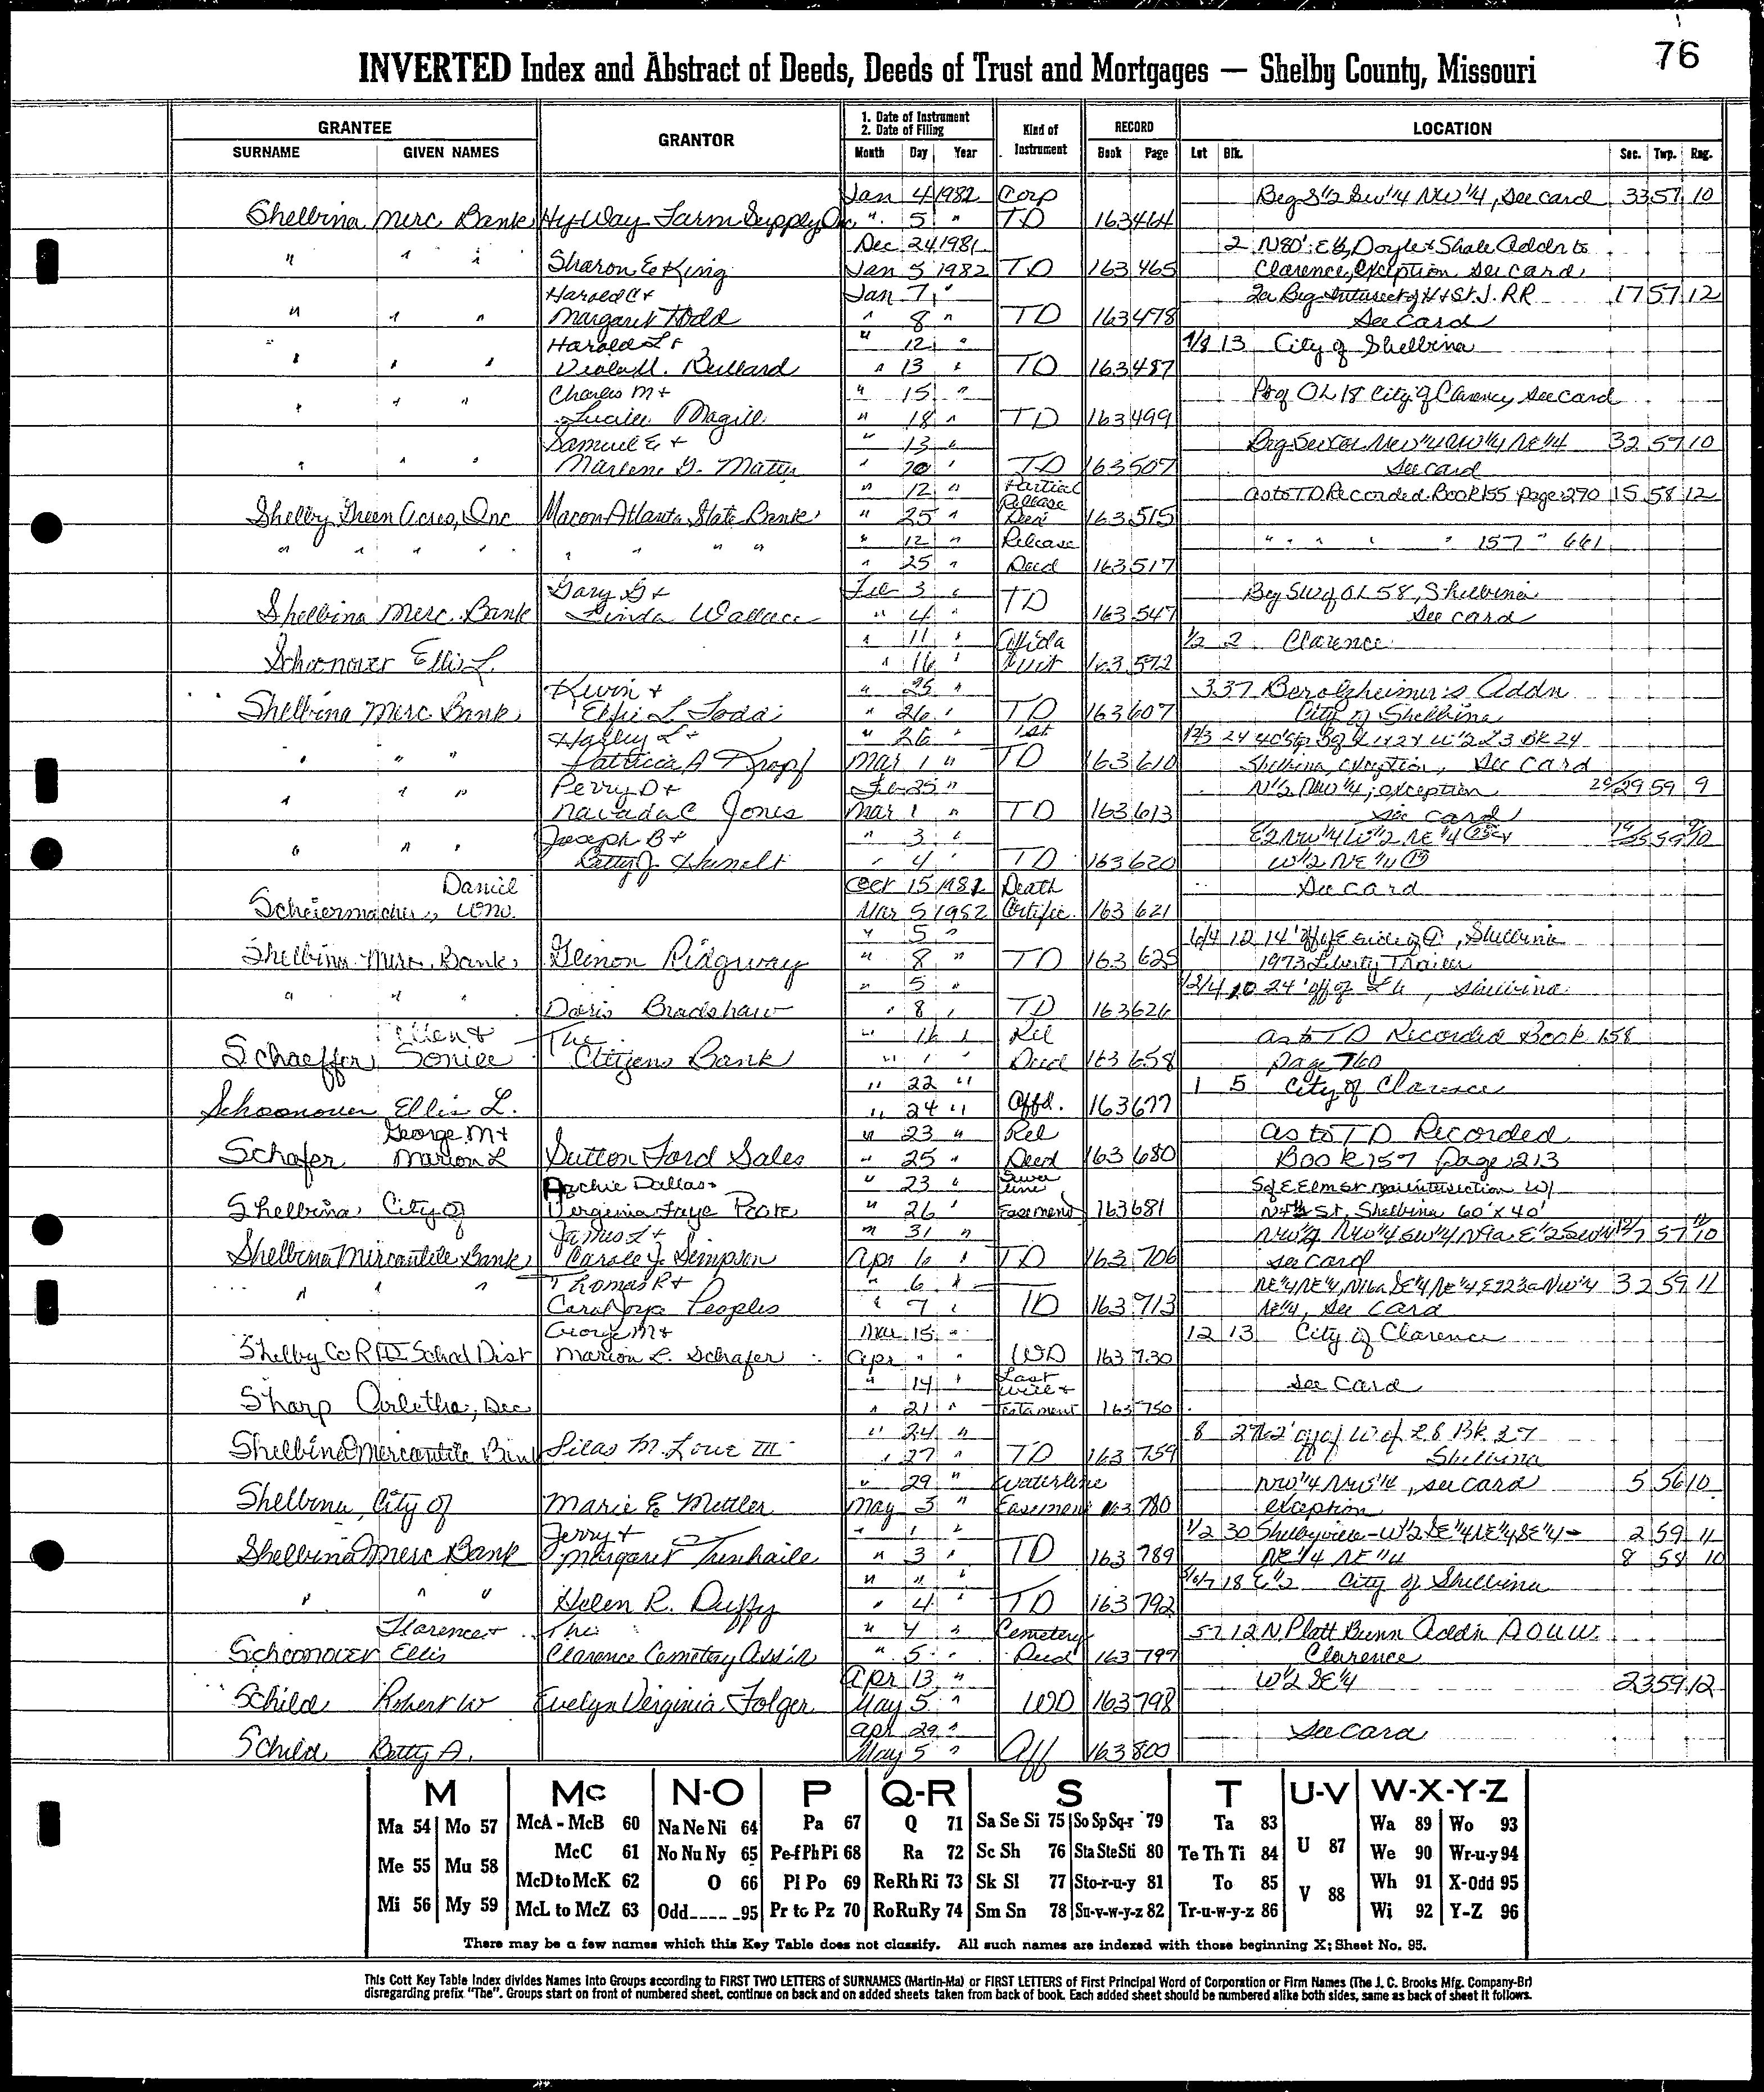 76
INVERTED Index and Abstract of Deeds, Deeds of Trust and Mortgages — Shelby County, Missouri
GRANTEE GRANTOR 1. Date of Instrument 2. Date of Filing Kind of Instrument RECORD LOCATION
SURNAME GIVEN NAMES Month Day Year Book Page Lot Blk. Sec. Twp. Rng.
Jan 4 1982 Corp Beg S 1/2 SW 1/4 NW 1/4, See card 33 57 10
Shelbina Merc Bank Hy-Way Farm Supply Inc " 5 " TD 163 464
Dec 24 1981 2 N80' E 1/2, Doyle & Shale Addn to
" " " Sharon E King Jan 5 1982 TD 163 465 Clarence, exception see card
Harold C + Jan 7 " 2a Beg Intersect of H & St. J. RR 17 57 12
" " " Margaret Todd " 8 " TD 163 478 See card
Harold L + " 12 " 13 City of Shelbina
" " " Viola M. Bullard " 13 " TD 163 487
Charles M + " 15 " OL 18 City of Clarence, See card
" " " Lucille Magill " 18 " TD 163 499
Samuel E + " 13 " NW 1/4 NE 1/4 32 57 10
" " " Marlene G. " 20 " TD 163 507 See card
" 12 " Partial Release as to TD Recorded Book 155 page 270 15 58 12
Shelby Green Acres, Inc Macon-Atlanta State Bank " 25 " Deed 163 515
" " " " " " " " " 12 " Release " " " " " 157 " 661
" 25 " Deed 163 517
Gary G + Feb 3 " Beg SW of OL 58, Shelbina
Shelbina Merc. Bank Linda Wallace " 4 " TD 163 547 See card
" 11 " Affida 1/2 2 Clarence
Schoonover Ellis L. " 16 " vit 163 572
Kevin + " 25 " 3 37 Berolzheimer's Addn
Shelbina Merc Bank Elfie L Todd " 26 " TD 163 607 City of Shelbina
Harley L + " 26 " 1st
" " " Patricia A Kropf Mar 1 " TD 163 610 Shelbina, exception, See card
Perry D + Feb 25 " N 1/2 NW 1/4; exception 29 59 9
" " " Navada C Jones Mar 1 " TD 163 613 See card
Joseph B + " 3 " E 1/2 NW 1/4 W 1/2 NE 1/4
" " " Betty J. " 4 " TD 163 620 W 1/2 NE 1/4
Daniel Oct 15 1981 Death See card
Scheiermacher, Wm. Mar 5 1982 Certific. 163 621
" 5 " 12 14' off of E side of , Shelbina
Shelbina Merc. Bank Glenon Ridgway " 8 " TD 163 625 1973 Liberty Trailer
" 5 " 10 24' off of , Shelbina
" " " Doris Bradshaw " 8 " TD 163 626
The " 16 " Rel as to TD Recorded Book 158
Schaeffer Citizens Bank " " " Deed 163 658 page 760
" 22 " 1 5 City of Clarence
Schoonover Ellis L. " 24 " Affd. 163 677
George M + " 23 " Rel as to TD Recorded
Schafer Marion L Sutton Ford Sales " 25 " Deed 163 680 Book 157 page 213
Archie Dallas + " 23 " Sewer line S of E. Elm St near intersection W/
Shelbina, City of Virginia Faye Poore " 26 " Easement 163 681 St, Shelbina 60' x 40'
James L + " 31 " 57 10
Shelbina Mercantile Bank Carole J. Simpson Apr 6 " TD 163 706 see card
Thomas R + " 6 " 32 59 11
" " " Carol Joyce Peoples " 7 " TD 163 713 NE 1/4, See card
George M + Mar 15 " 12 13 City of Clarence
Shelby Co R School Dist Marion L. Schafer Apr " " WD 163 730
" 14 " Last Will + See card
Sharp Arletha, Dec " 21 " Testament 163 750
" 24 " 8 27 off of W of L 8 Bk 27
Shelbina Mercantile Bank Silas M. Lowe III " 27 " TD 163 759 Shelbina
" 29 " Waterline NW 1/4 NW 1/4, see card 5 56 10
Shelbina, City of Marie E Mettler May 3 " Easement 163 780 exception
Jerry + " 1 " 1/2 30 Shelbyville - W 1/2 SE 1/4 NE 1/4 SE 1/4 2 59 11
Shelbina Merc Bank Margaret Trenhaile " 3 " TD 163 789 NE 1/4 NE 1/4 8 58 10
" " " 18 E 1/2 City of Shelbina
" " " Helen R. Duffy " 4 " TD 163 792
Florence + The " 4 " Cemetery 57 12 N Platt Bunn Addn A O U W
Schoonover Ellis Clarence Cemetery Ass'n " 5 " Deed 163 797 Clarence
Apr 13 " W 1/2 SE 1/4 23 59 12
Schild Robert W Evelyn Virginia Folger May 5 " WD 163 798
Apr 29 " See card
Schild Betty A. May 5 " Aff 163 800
M Mc N-O P Q-R S T U-V W-X-Y-Z
Ma 54 Mo 57 McA - McB 60 Na Ne Ni 64 Pa 67 Q 71 Sa Se Si 75 So Sp Sq-r 79 Ta 83 U 87 Wa 89 Wo 93
Me 55 Mu 58 McC 61 No Nu Ny 65 Pe-f Ph Pi 68 Ra 72 Sc Sh 76 Sta Ste Sti 80 Te Th Ti 84 V 88 We 90 Wr-u-y 94
McD to McK 62 O 66 Pl Po 69 Re Rh Ri 73 Sk Sl 77 Sto-r-u-y 81 To 85 Wh 91 X-Odd 95
Mi 56 My 59 McL to McZ 63 Odd 95 Pr to Pz 70 Ro Ru Ry 74 Sm Sn 78 Su-v-w-y-z 82 Tr-u-w-y-z 86 Wi 92 Y-Z 96
There may be a few names which this Key Table does not classify. All such names are indexed with those beginning X; Sheet No. 95.
This Cott Key Table Index divides Names into Groups according to FIRST TWO LETTERS of SURNAMES (Martin-Ma) or FIRST LETTERS of First Principal Word of Corporation or Firm Names (The J. C. Brooks Mfg. Company-Br)
disregarding prefix "The". Groups start on front of numbered sheet, continue on back and on added sheets taken from back of book. Each added sheet should be numbered alike both sides, same as back of sheet it follows.